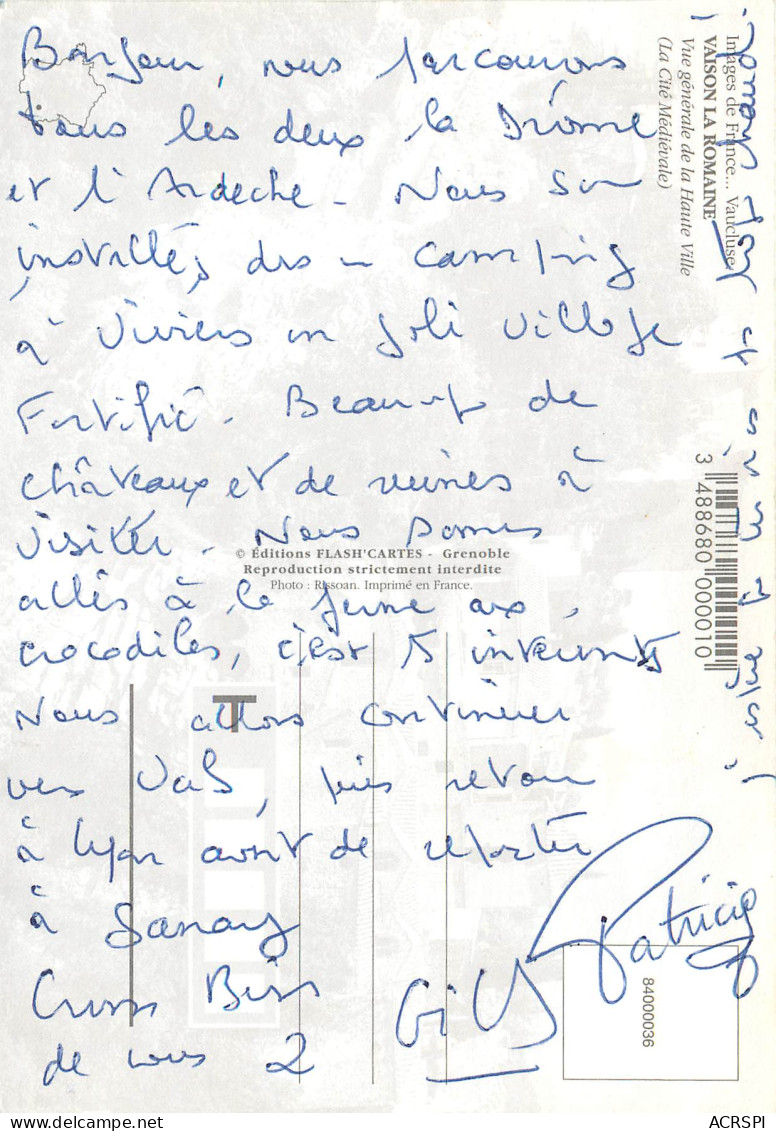 Images de France... Vaucluse
VAISON LA ROMAINE
Vue générale de la Haute Ville
(La Cité Médiévale)
Bonjour, nous parcourons
tous les deux la Drôme
et l'Ardeche - Nous son
installés ds un camping
à Viviers un joli village
Fortifié. Beaucoup de
châteaux et de ruines à
visiter. Nous sommes
allés à la ferme aux
crocodiles, c'est
Nous allons continuer
vers Vals, puis retour
à Lyon avant de repartir
à Sanary
Gross Biss
de nous 2
Gilles
Patricia
© Éditions FLASH'CARTES - Grenoble
Reproduction strictement interdite
Photo : Rissoan. Imprimé en France.
3 488680 000010
T
84000036
delcampe.net
ACRSPI